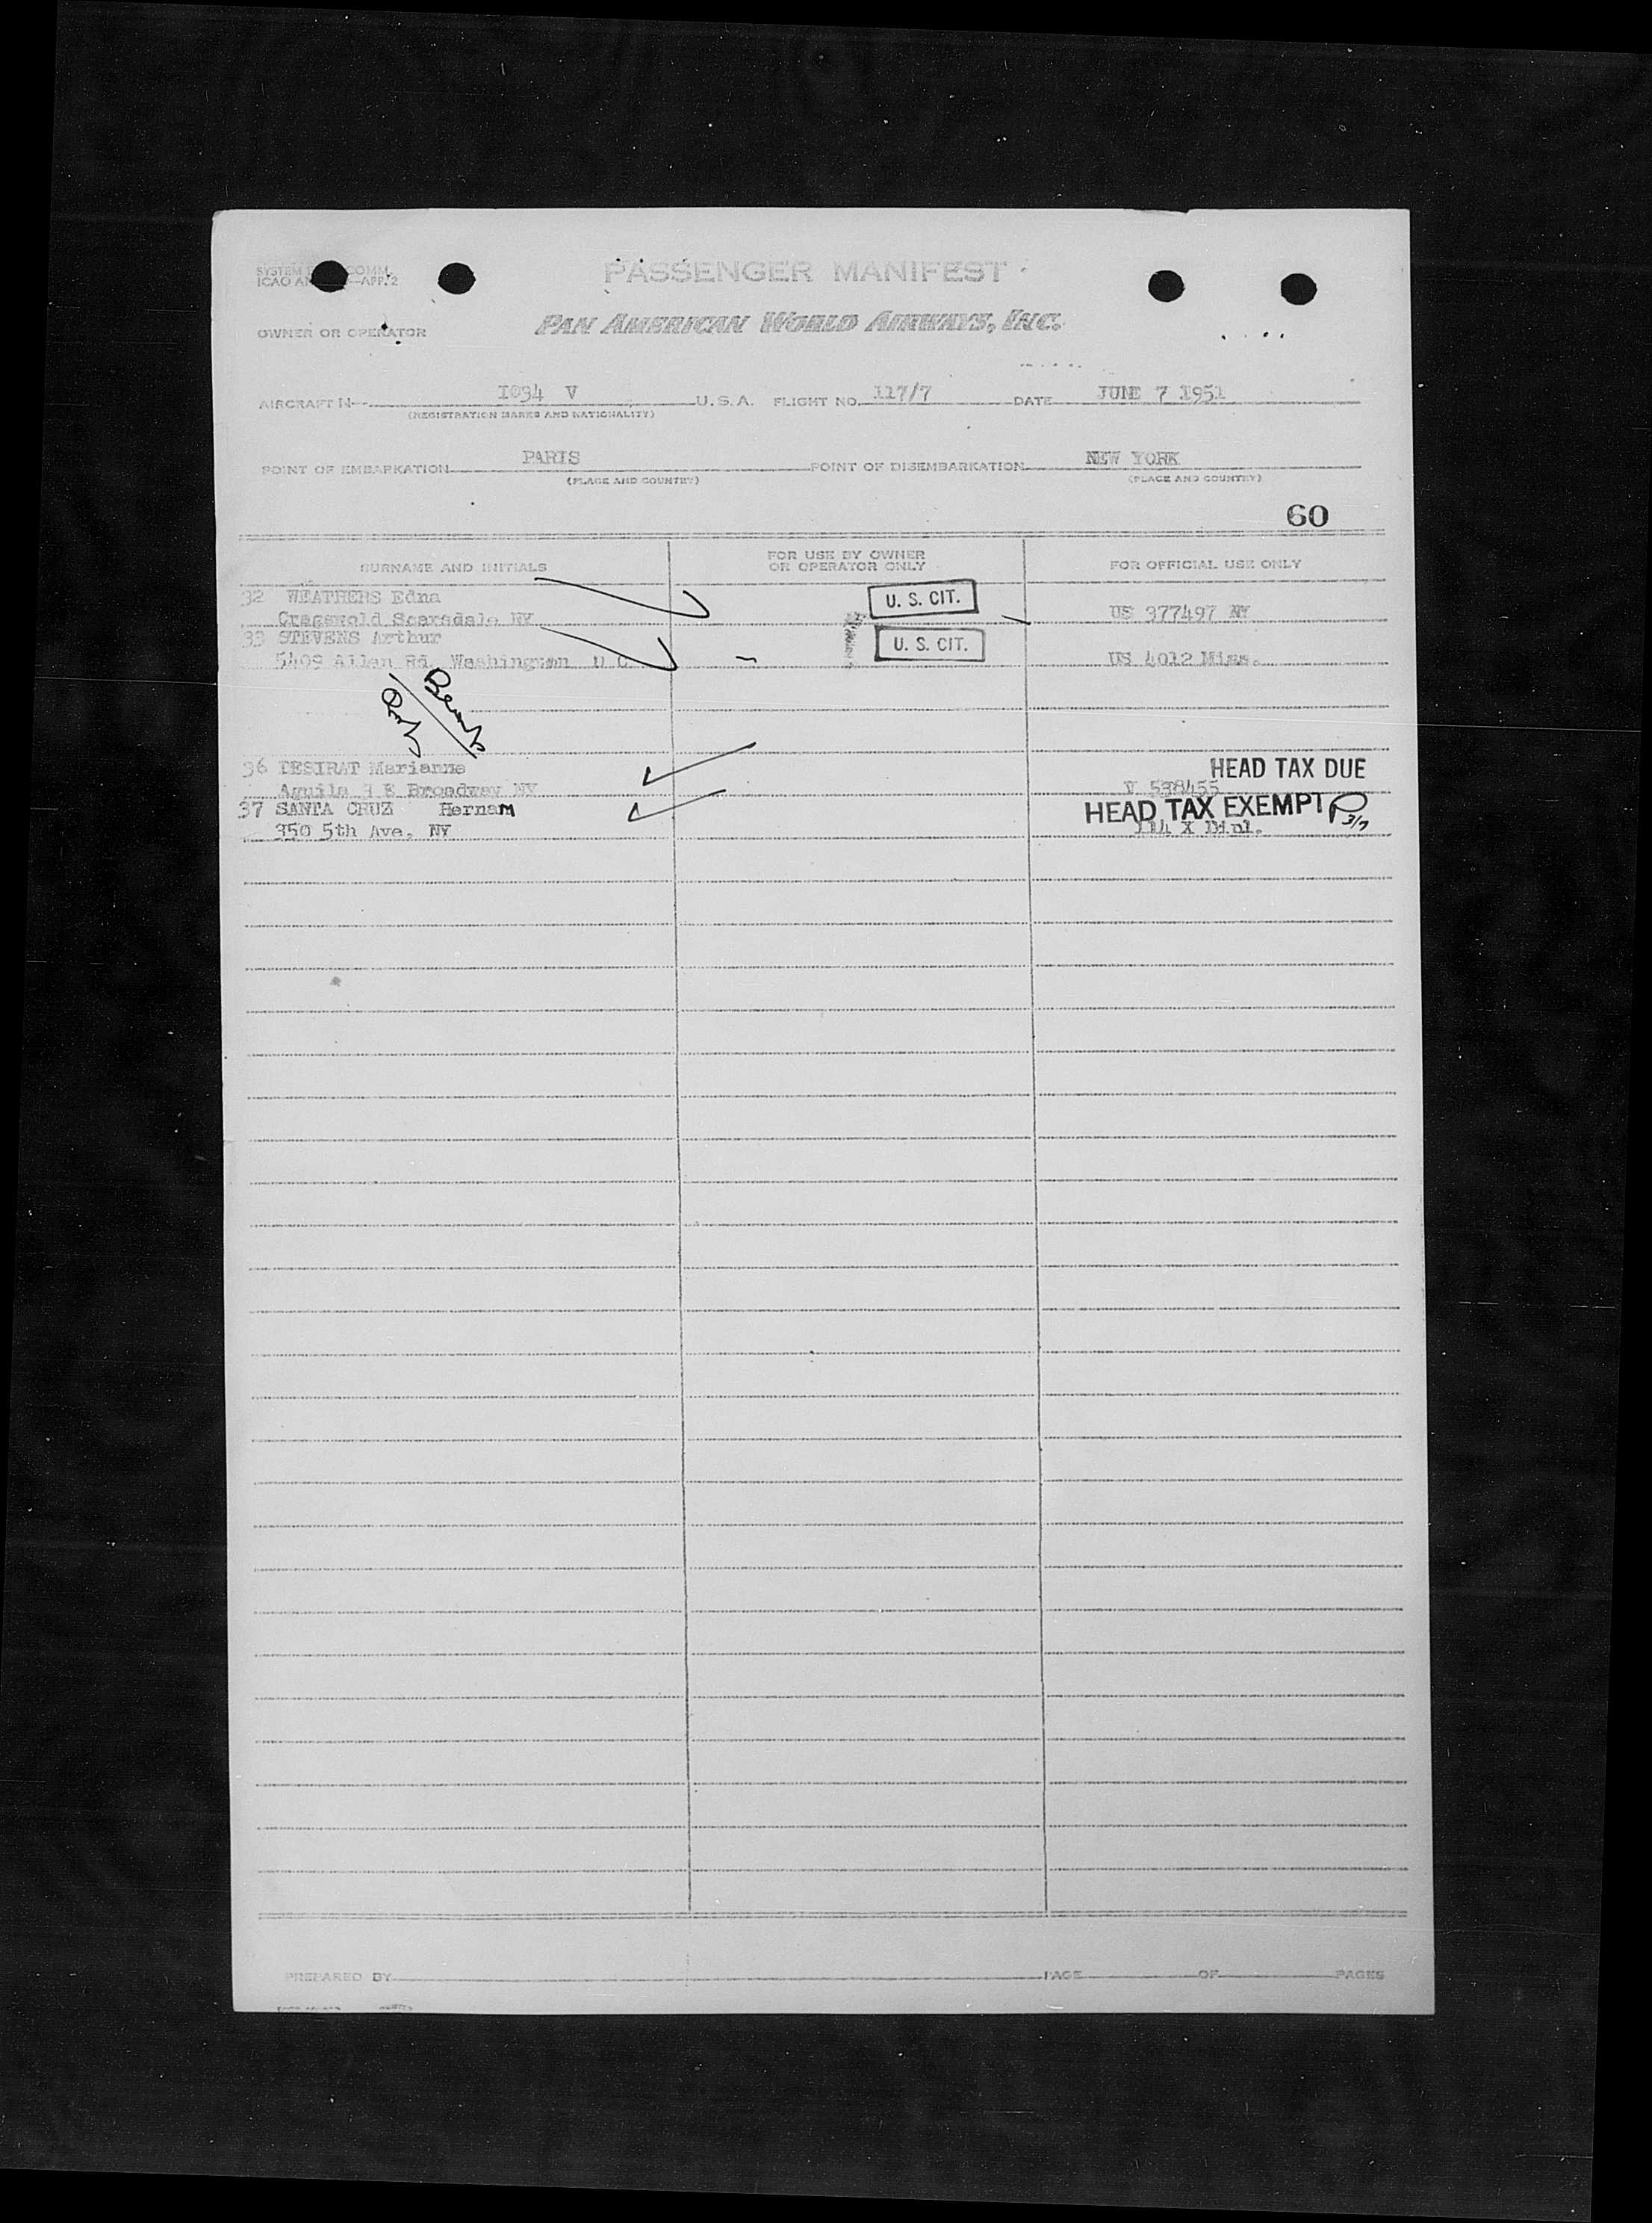 SYSTEM COMM.
ICAO AN —APP. 2
PASSENGER MANIFEST
OWNER OR OPERATOR PAN AMERICAN WORLD AIRWAYS, INC.
AIRCRAFT N- 1034 V U.S.A. FLIGHT NO. 117/7 DATE JUNE 7 1951
(REGISTRATION MARKS AND NATIONALITY)
POINT OF EMBARKATION PARIS POINT OF DISEMBARKATION NEW YORK
(PLACE AND COUNTRY) (PLACE AND COUNTRY)
60
SURNAME AND INITIALS FOR USE BY OWNER OR OPERATOR ONLY FOR OFFICIAL USE ONLY
32 WEATHERS Edna U. S. CIT.
Scarsdale NY US 377497 NY
33 STEVENS Arthur U. S. CIT.
5409 Allan Rd. Washington D C US 4012 Miss.
36 DESIRAT Marianne HEAD TAX DUE
Aguila 3 E Broadway NY V 538455
37 SANTA CRUZ Hernam HEAD TAX EXEMPT 3/7
350 5th Ave. NY 114 X Dipl.
PREPARED BY PAGE OF PAGES